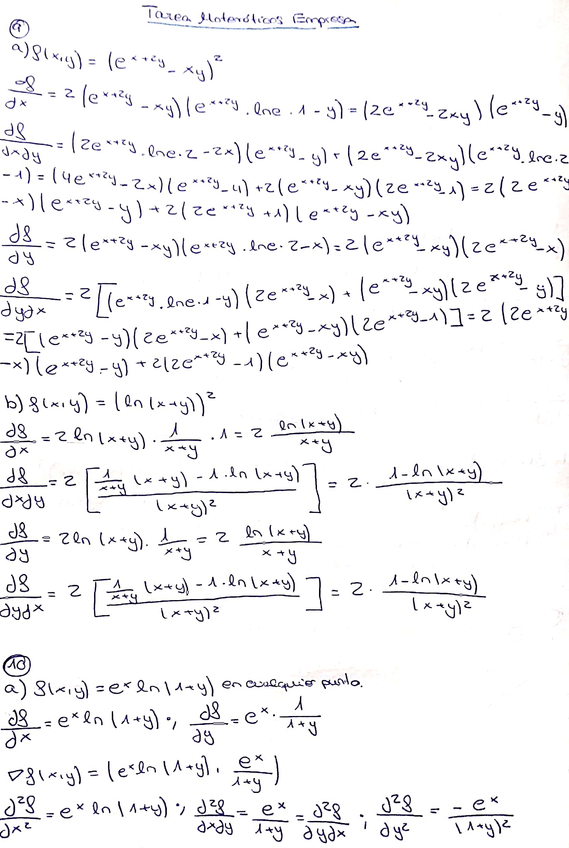 Tarea Matemáticas Empresa
9
a) f(x,y) = (e^{x+2y} - xy)^2
df/dx = 2(e^{x+2y} - xy)(e^{x+2y}·lne·1 - y) = (2e^{x+2y} - 2xy)(e^{x+2y} - y)
df/dxdy = (2e^{x+2y}·lne·2 - 2x)(e^{x+2y} - y) + (2e^{x+2y} - 2xy)(e^{x+2y}·lne·2
- 1) = (4e^{x+2y} - 2x)(e^{x+2y} - y) + 2(e^{x+2y} - xy)(2e^{x+2y} - 1) = 2(2e^{x+2y}
- x)(e^{x+2y} - y) + 2(2e^{x+2y} + 1)(e^{x+2y} - xy)
df/dy = 2(e^{x+2y} - xy)(e^{x+2y}·lne·2 - x) = 2(e^{x+2y} - xy)(2e^{x+2y} - x)
df/dydx = 2[(e^{x+2y}·lne·1 - y)(2e^{x+2y} - x) + (e^{x+2y} - xy)(2e^{x+2y} - y)]
= 2[(e^{x+2y} - y)(2e^{x+2y} - x) + (e^{x+2y} - xy)(2e^{x+2y} - 1)] = 2(2e^{x+2y}
- x)(e^{x+2y} - y) + 2(2e^{x+2y} - 1)(e^{x+2y} - xy)
b) f(x,y) = (ln(x+y))^2
df/dx = 2 ln(x+y) · 1/(x+y) · 1 = 2 ln(x+y)/(x+y)
df/dxdy = 2 [(1/(x+y) (x+y) - 1·ln(x+y))/(x+y)^2] = 2 · (1 - ln(x+y))/(x+y)^2
df/dy = 2 ln(x+y) · 1/(x+y) = 2 ln(x+y)/(x+y)
df/dydx = 2 [(1/(x+y) (x+y) - 1·ln(x+y))/(x+y)^2] = 2 · (1 - ln(x+y))/(x+y)^2
10
a) f(x,y) = e^x ln(1+y) en cualquier punto.
df/dx = e^x ln(1+y) ; df/dy = e^x · 1/(1+y)
∇f(x,y) = (e^x ln(1+y), e^x/(1+y))
d^2f/dx^2 = e^x ln(1+y) ; d^2f/dxdy = e^x/(1+y) = d^2f/dydx ; d^2f/dy^2 = -e^x/(1+y)^2